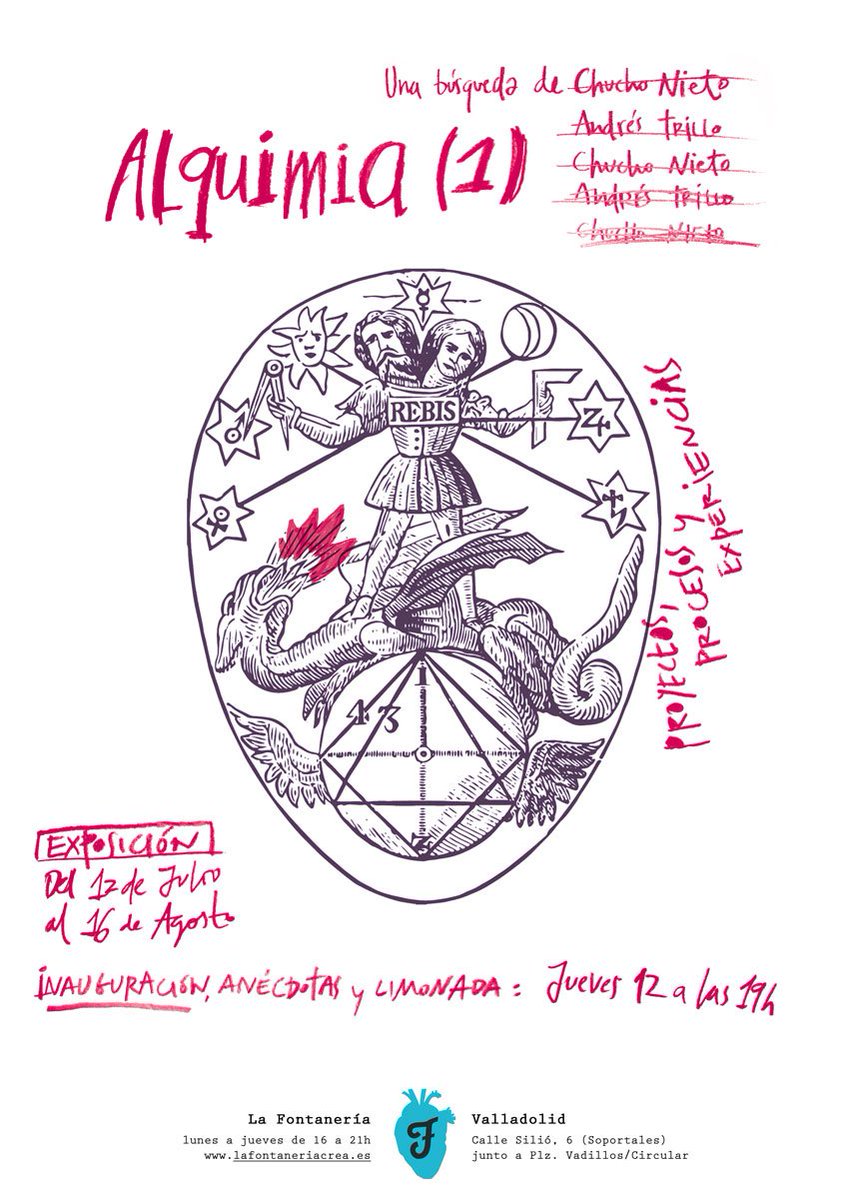 Una búsqueda de Chucho Nieto
Andrés Trillo
Chucho Nieto
Andrés Trillo
Chucho Nieto
Alquimia (1)
REBIS
PROYECTOS,
PROCESOS Y
EXPERIENCIAS
4 3
1
2
EXPOSICIÓN
Del 12 de Julio
al 16 de Agosto
INAUGURACIÓN, ANÉCDOTAS y LIMONADA: Jueves 12 a las 19h
La Fontanería
lunes a jueves de 16 a 21h
www.lafontaneriacrea.es
F
Valladolid
Calle Silió, 6 (Soportales)
junto a Plz. Vadillos/Circular